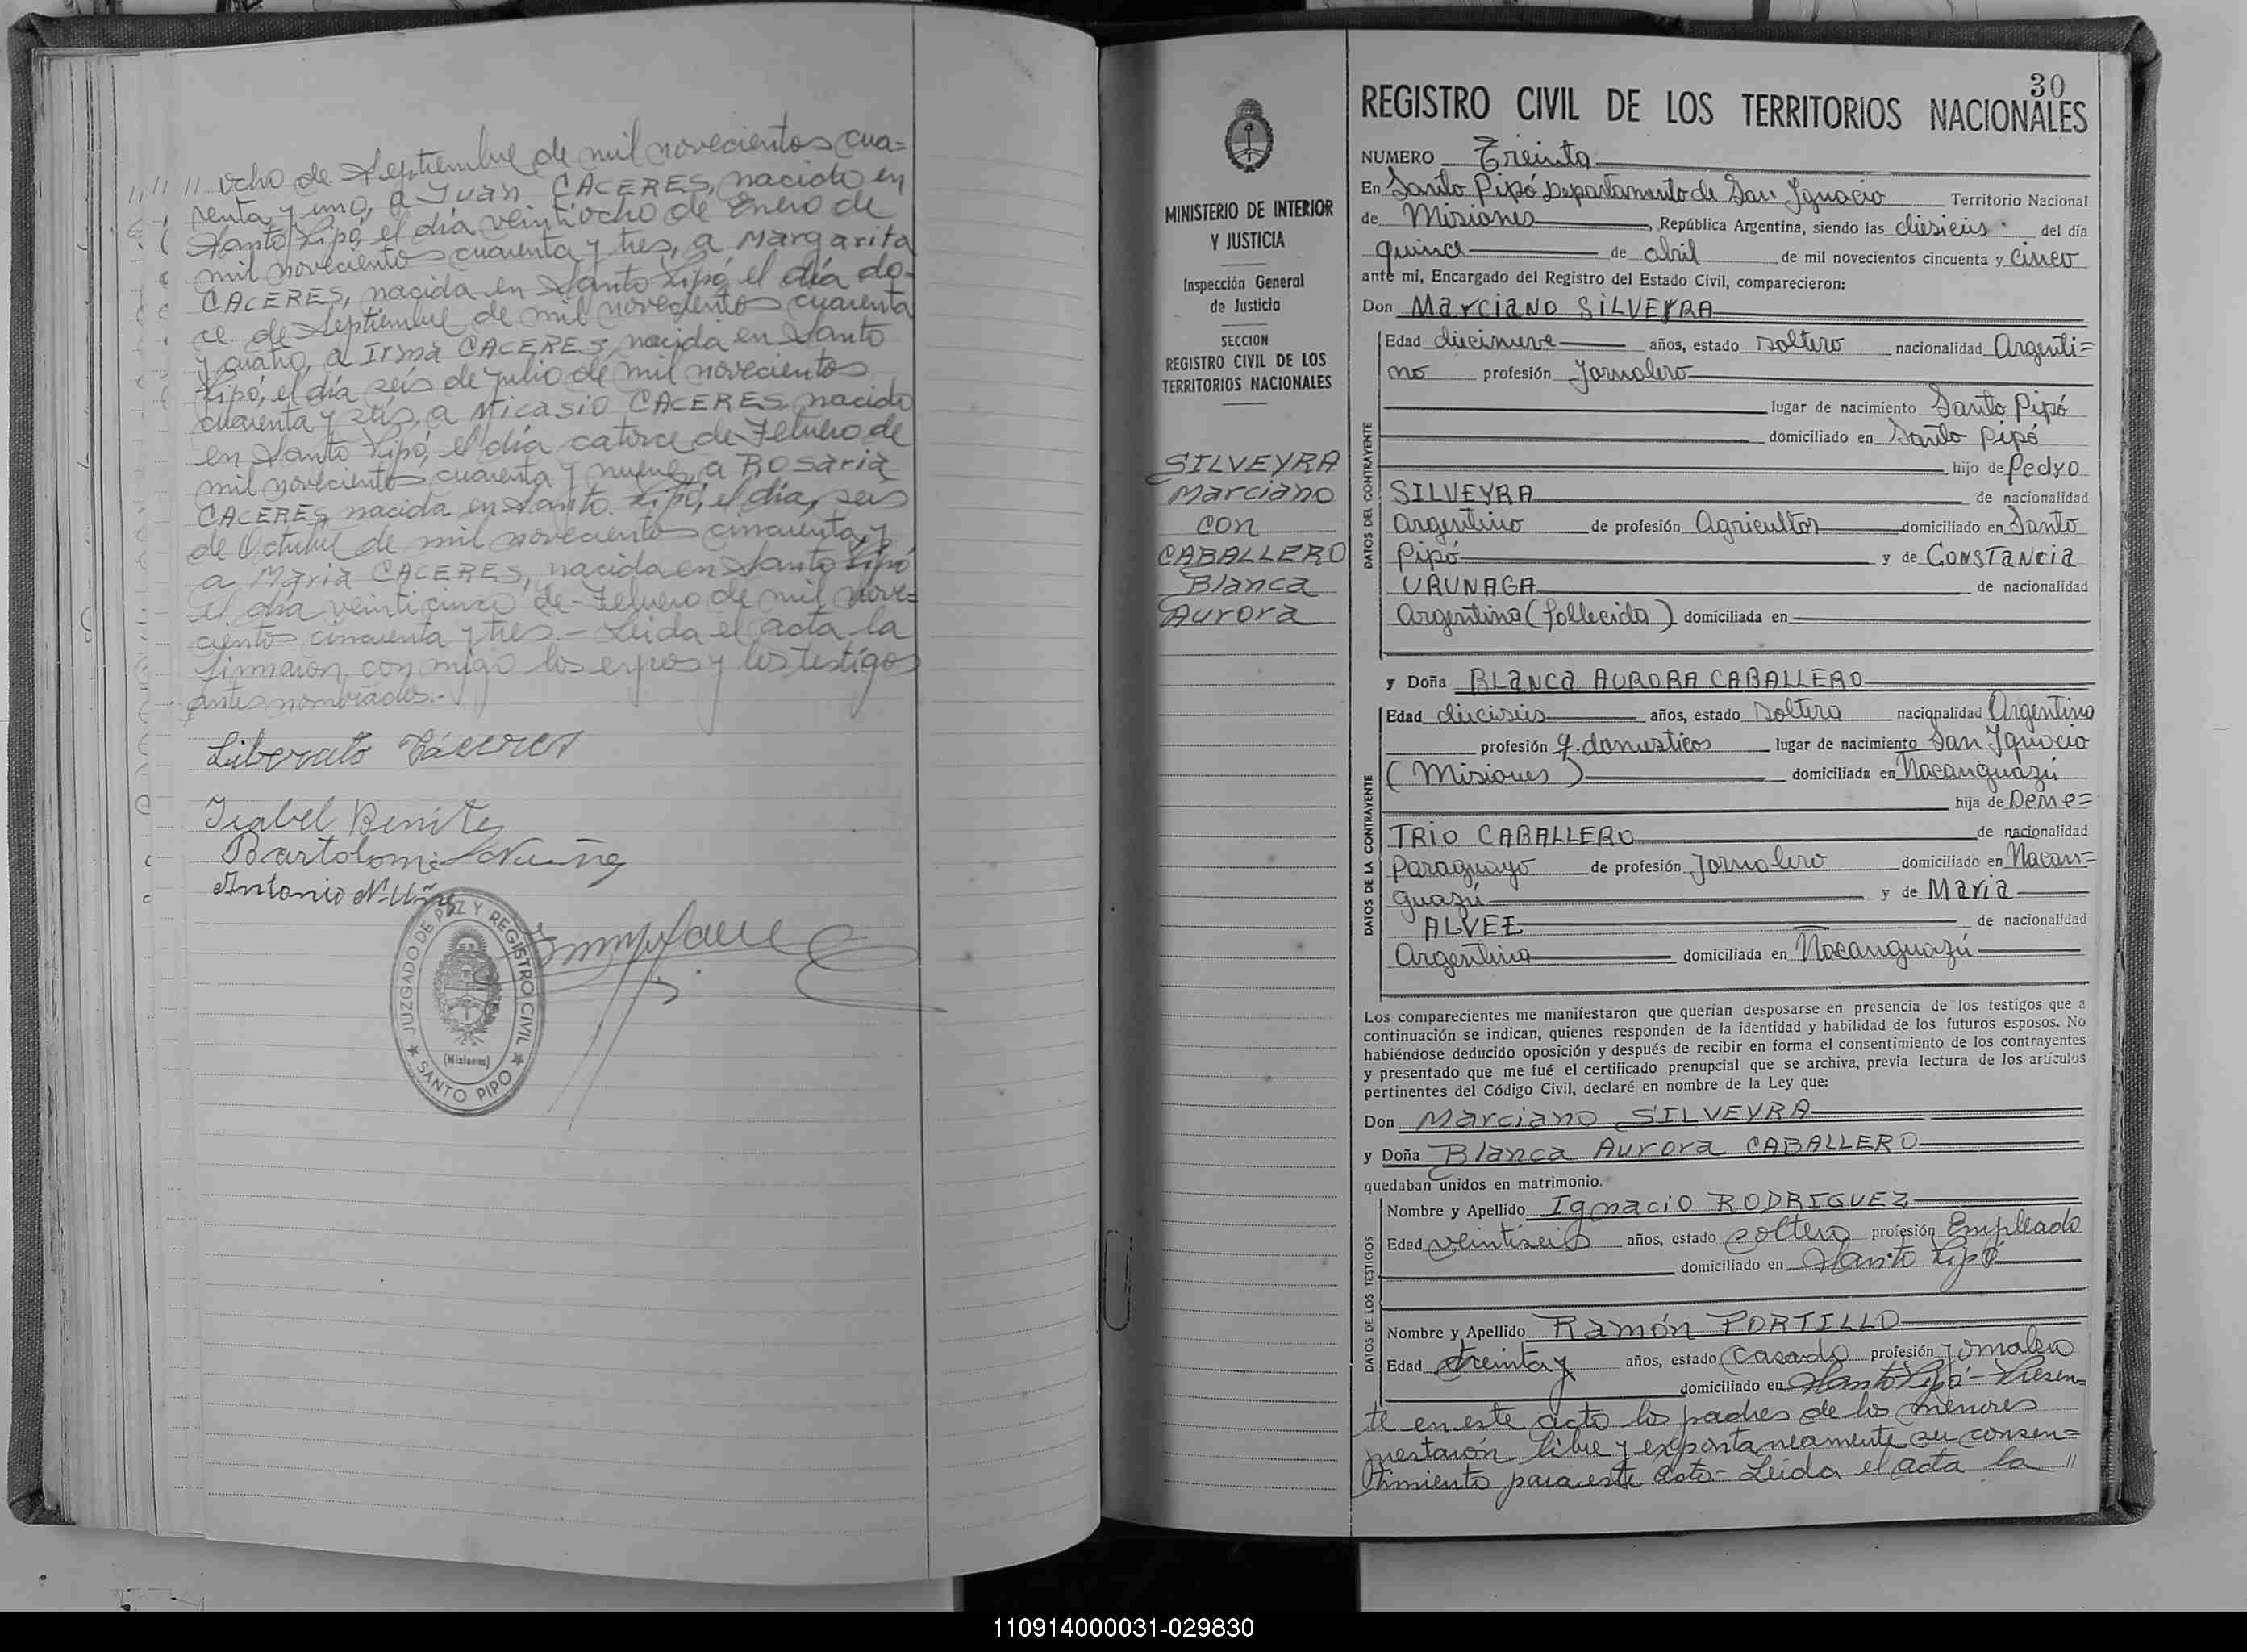 // ocho de Septiembre de mil novecientos cua=
renta y uno, a Juan CACERES, nacido en
Santo Pipó, el día veintiocho de Enero de
mil novecientos cuarenta y tres, a Margarita
CACERES, nacida en Santo Pipó, el día do-
ce de Septiembre de mil novecientos cuarenta
y cuatro, a Irma CACERES, nacida en Santo
Pipó, el día seis de Julio de mil novecientos
cuarenta y seis, a Nicasio CACERES nacido
en Santo Pipó, el día catorce de Febrero de
mil novecientos cuarenta y nueve, a Rosaria
CACERES, nacida en Santo Pipó, el día, seis
de Octubre de mil novecientos cincuenta, y
a Maria CACERES, nacida en Santo Pipó
el día veinticinco de Febrero de mil nove=
cientos cincuenta y tres.- Leida el acta la
firmaron con migo los espos y los testigos
antes nombrados.-
Liberato Cáceres
Isabel Benites
Bartolomé
Antonio Nuñe
JUZGADO DE PAZ Y REGISTRO CIVIL
(Misiones)
★ SANTO PIPO ★
MINISTERIO DE INTERIOR
Y JUSTICIA
Inspección General
de Justicia
SECCION
REGISTRO CIVIL DE LOS
TERRITORIOS NACIONALES
SILVEYRA
Marciano
con
CABALLERO
Blanca
Aurora
30
REGISTRO CIVIL DE LOS TERRITORIOS NACIONALES
NUMERO Treinta
En Santo Pipó Departamento de San Ignacio Territorio Nacional
de Misiones, República Argentina, siendo las diesiseis del día
quince de abril de mil novecientos cincuenta y cinco
ante mí, Encargado del Registro del Estado Civil, comparecieron:
Don Marciano SILVEYRA
DATOS DEL CONTRAYENTE
Edad diecinueve años, estado soltero nacionalidad Argenti=
no profesión Jornalero
lugar de nacimiento Santo Pipó
domiciliado en Santo Pipó
hijo de Pedro
SILVEYRA de nacionalidad
argentino de profesión Agricultor domiciliado en Santo
Pipó y de Constancia
URUNAGA de nacionalidad
Argentina (fallecida) domiciliada en
y Doña BLANCA AURORA CABALLERO
DATOS DE LA CONTRAYENTE
Edad dieciseis años, estado soltera nacionalidad Argentina
profesión q. domesticos lugar de nacimiento San Ignacio
(Misiones) domiciliada en Ñacanguazú
hija de Deme=
TRIO CABALLERO de nacionalidad
Paraguayo de profesión Jornalero domiciliado en Ñacan=
guazú y de Maria
ALVEZ de nacionalidad
Argentina domiciliada en Ñacanguazú
Los comparecientes me manifestaron que querían desposarse en presencia de los testigos que a
continuación se indican, quienes responden de la identidad y habilidad de los futuros esposos. No
habiéndose deducido oposición y después de recibir en forma el consentimiento de los contrayentes
y presentado que me fué el certificado prenupcial que se archiva, previa lectura de los artículos
pertinentes del Código Civil, declaré en nombre de la Ley que:
Don Marciano SILVEYRA
y Doña Blanca Aurora CABALLERO
quedaban unidos en matrimonio.
DATOS DE LOS TESTIGOS
Nombre y Apellido Ignacio RODRIGUEZ
Edad veintiseis años, estado soltero profesión Empleado
domiciliado en Santo Pipó
Nombre y Apellido Ramón PORTILLO
Edad treinta y años, estado casado profesión jornalero
domiciliado en Santo Pipó- Presen=
te en este acto los padres de los menores
prestaron libre y expontaneamente su consen=
timiento para este acto- Leida el acta la //
110914000031-029830